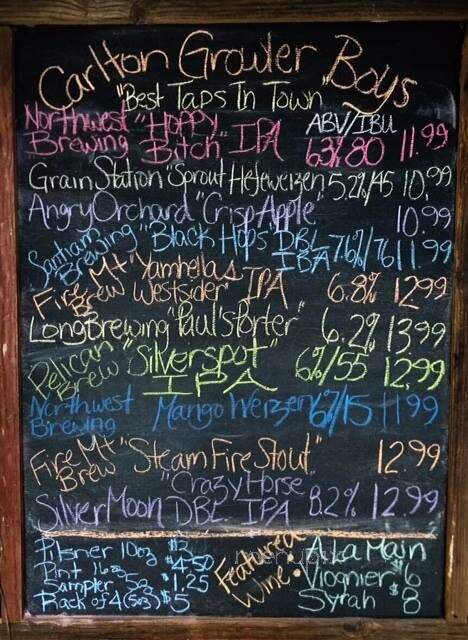 Carlton Growler Boys
"Best Taps In Town"
ABV/IBU
Northwest Brewing "Hoppy Bitch" IPA 6.3% 80 11.99
Grain Station "Sprout Hefeweizen 5.2%/15 10.99
Angry Orchard "Crisp Apple" 10.99
Santiam Brewing "Black Hops" DBL IBA 7.6%/76 11.99
Fire Mt Brew "Yamhellas Westsider" IPA 6.8% 12.99
Long Brewing "Paul's Porter" 6.2% 13.99
Pelican Brew "Silverspot" IPA 6%/55 12.99
Northwest Brewing Mango Weizen 6%/15 11.99
Fire Mt Brew "Steam Fire Stout" 12.99
Silver Moon "Crazy Horse" DBL IPA 8.2% 12.99
Pilsner 10oz $3
Pint 16oz $4.50
Sampler 5oz $1.25
Rack of 4 (5oz) $5
Featured Wine:
Alka Main
Viognier $6
Syrah $8